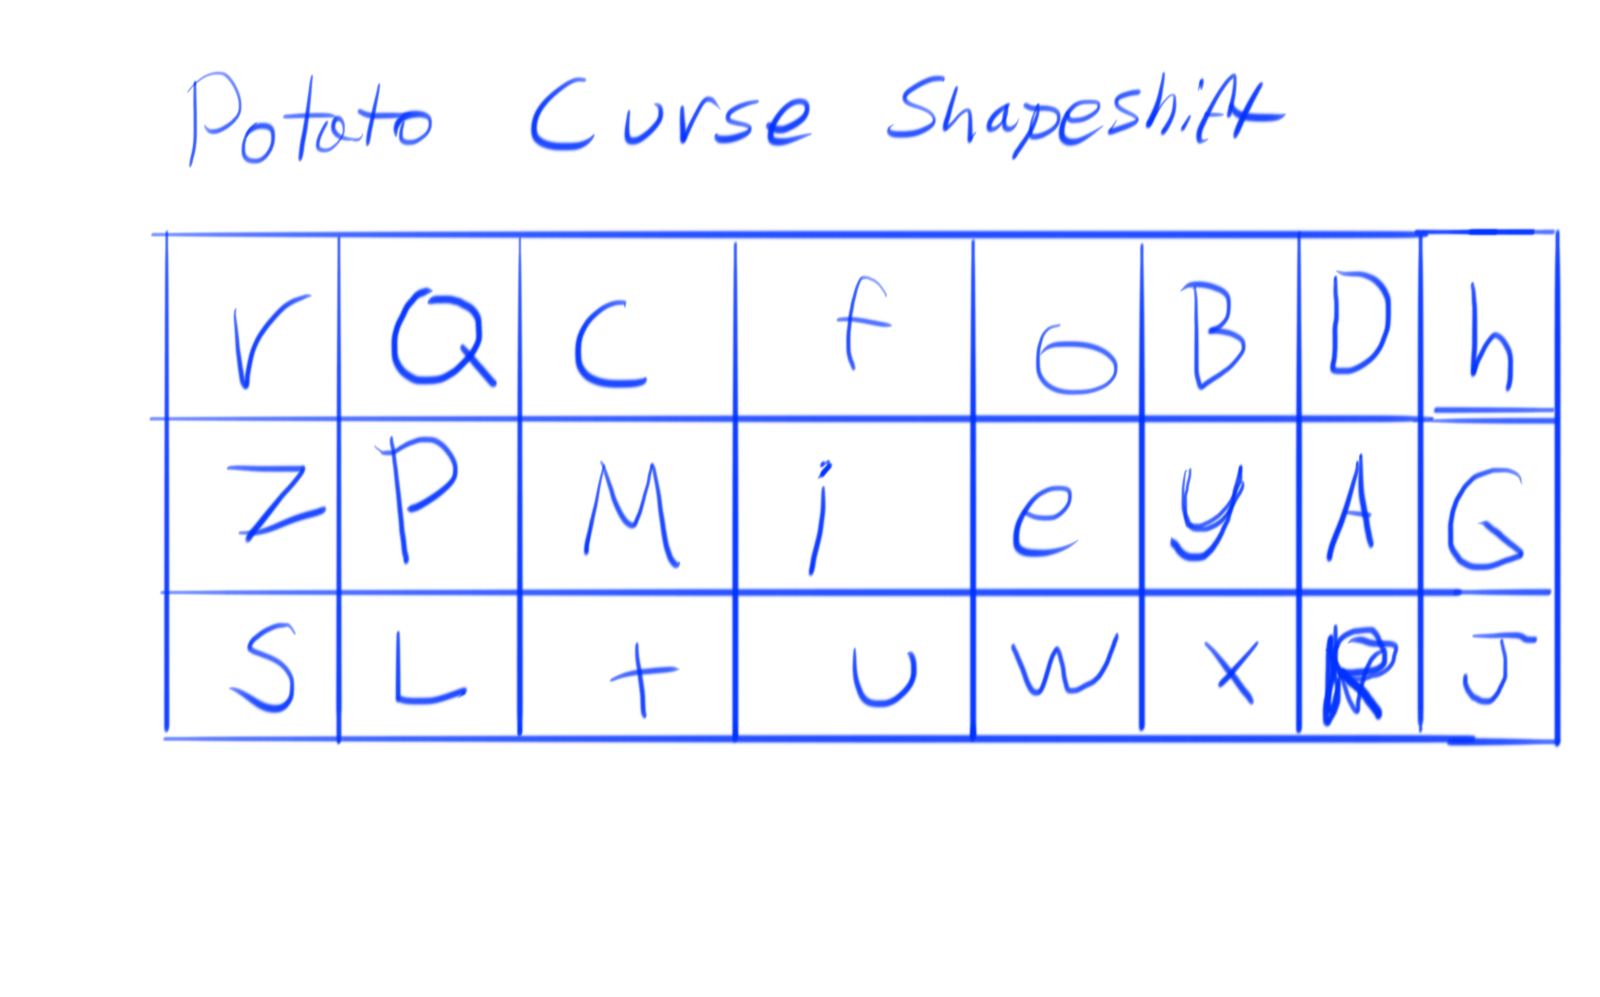 Potato Curse Shapeshift
r Q C f o B D h
Z P M i e y A G
S L t u w x R J